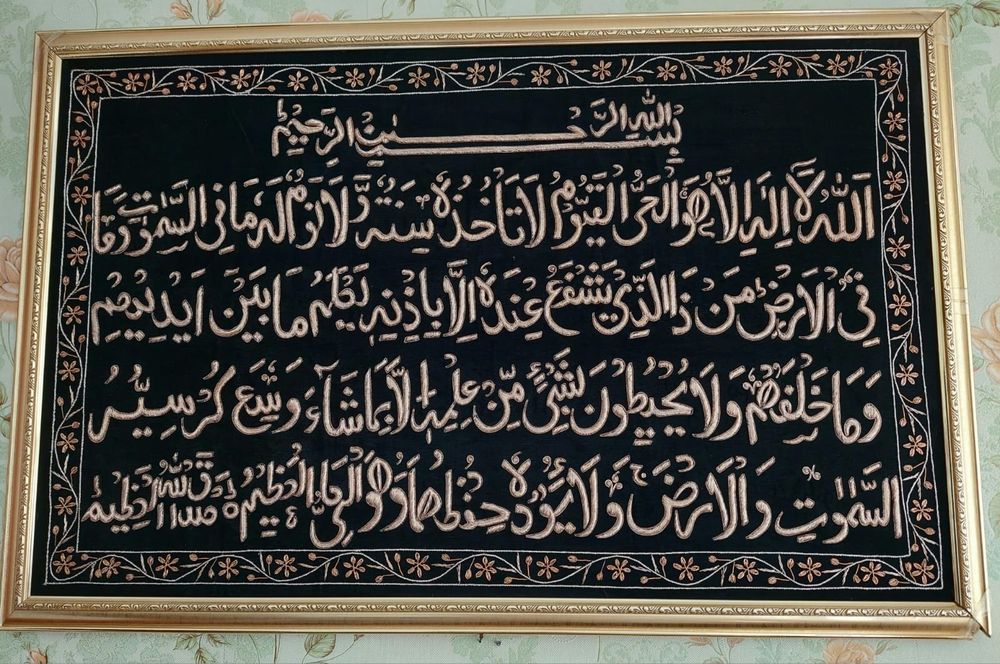 بِسْمِ اللهِ الرَّحْمٰنِ الرَّحِيْمِ
اَللهُ لَا اِلٰهَ اِلَّا هُوَ الْحَيُّ الْقَيُّوْمُ لَا تَاْخُذُهٗ سِنَةٌ وَّلَا نَوْمٌ لَهٗ مَا فِى السَّمٰوٰتِ وَمَا
فِى الْاَرْضِ مَنْ ذَا الَّذِىْ يَشْفَعُ عِنْدَهٗ اِلَّا بِاِذْنِهٖ يَعْلَمُ مَا بَيْنَ اَيْدِيْهِمْ
وَمَا خَلْفَهُمْ وَلَا يُحِيْطُوْنَ بِشَىْءٍ مِّنْ عِلْمِهٖ اِلَّا بِمَا شَآءَ وَسِعَ كُرْسِيُّهُ
السَّمٰوٰتِ وَالْاَرْضَ وَلَا يَـُٔوْدُهٗ حِفْظُهُمَا وَهُوَ الْعَلِىُّ الْعَظِيْمُ صَدَقَ اللهُ الْعَظِيْمُ